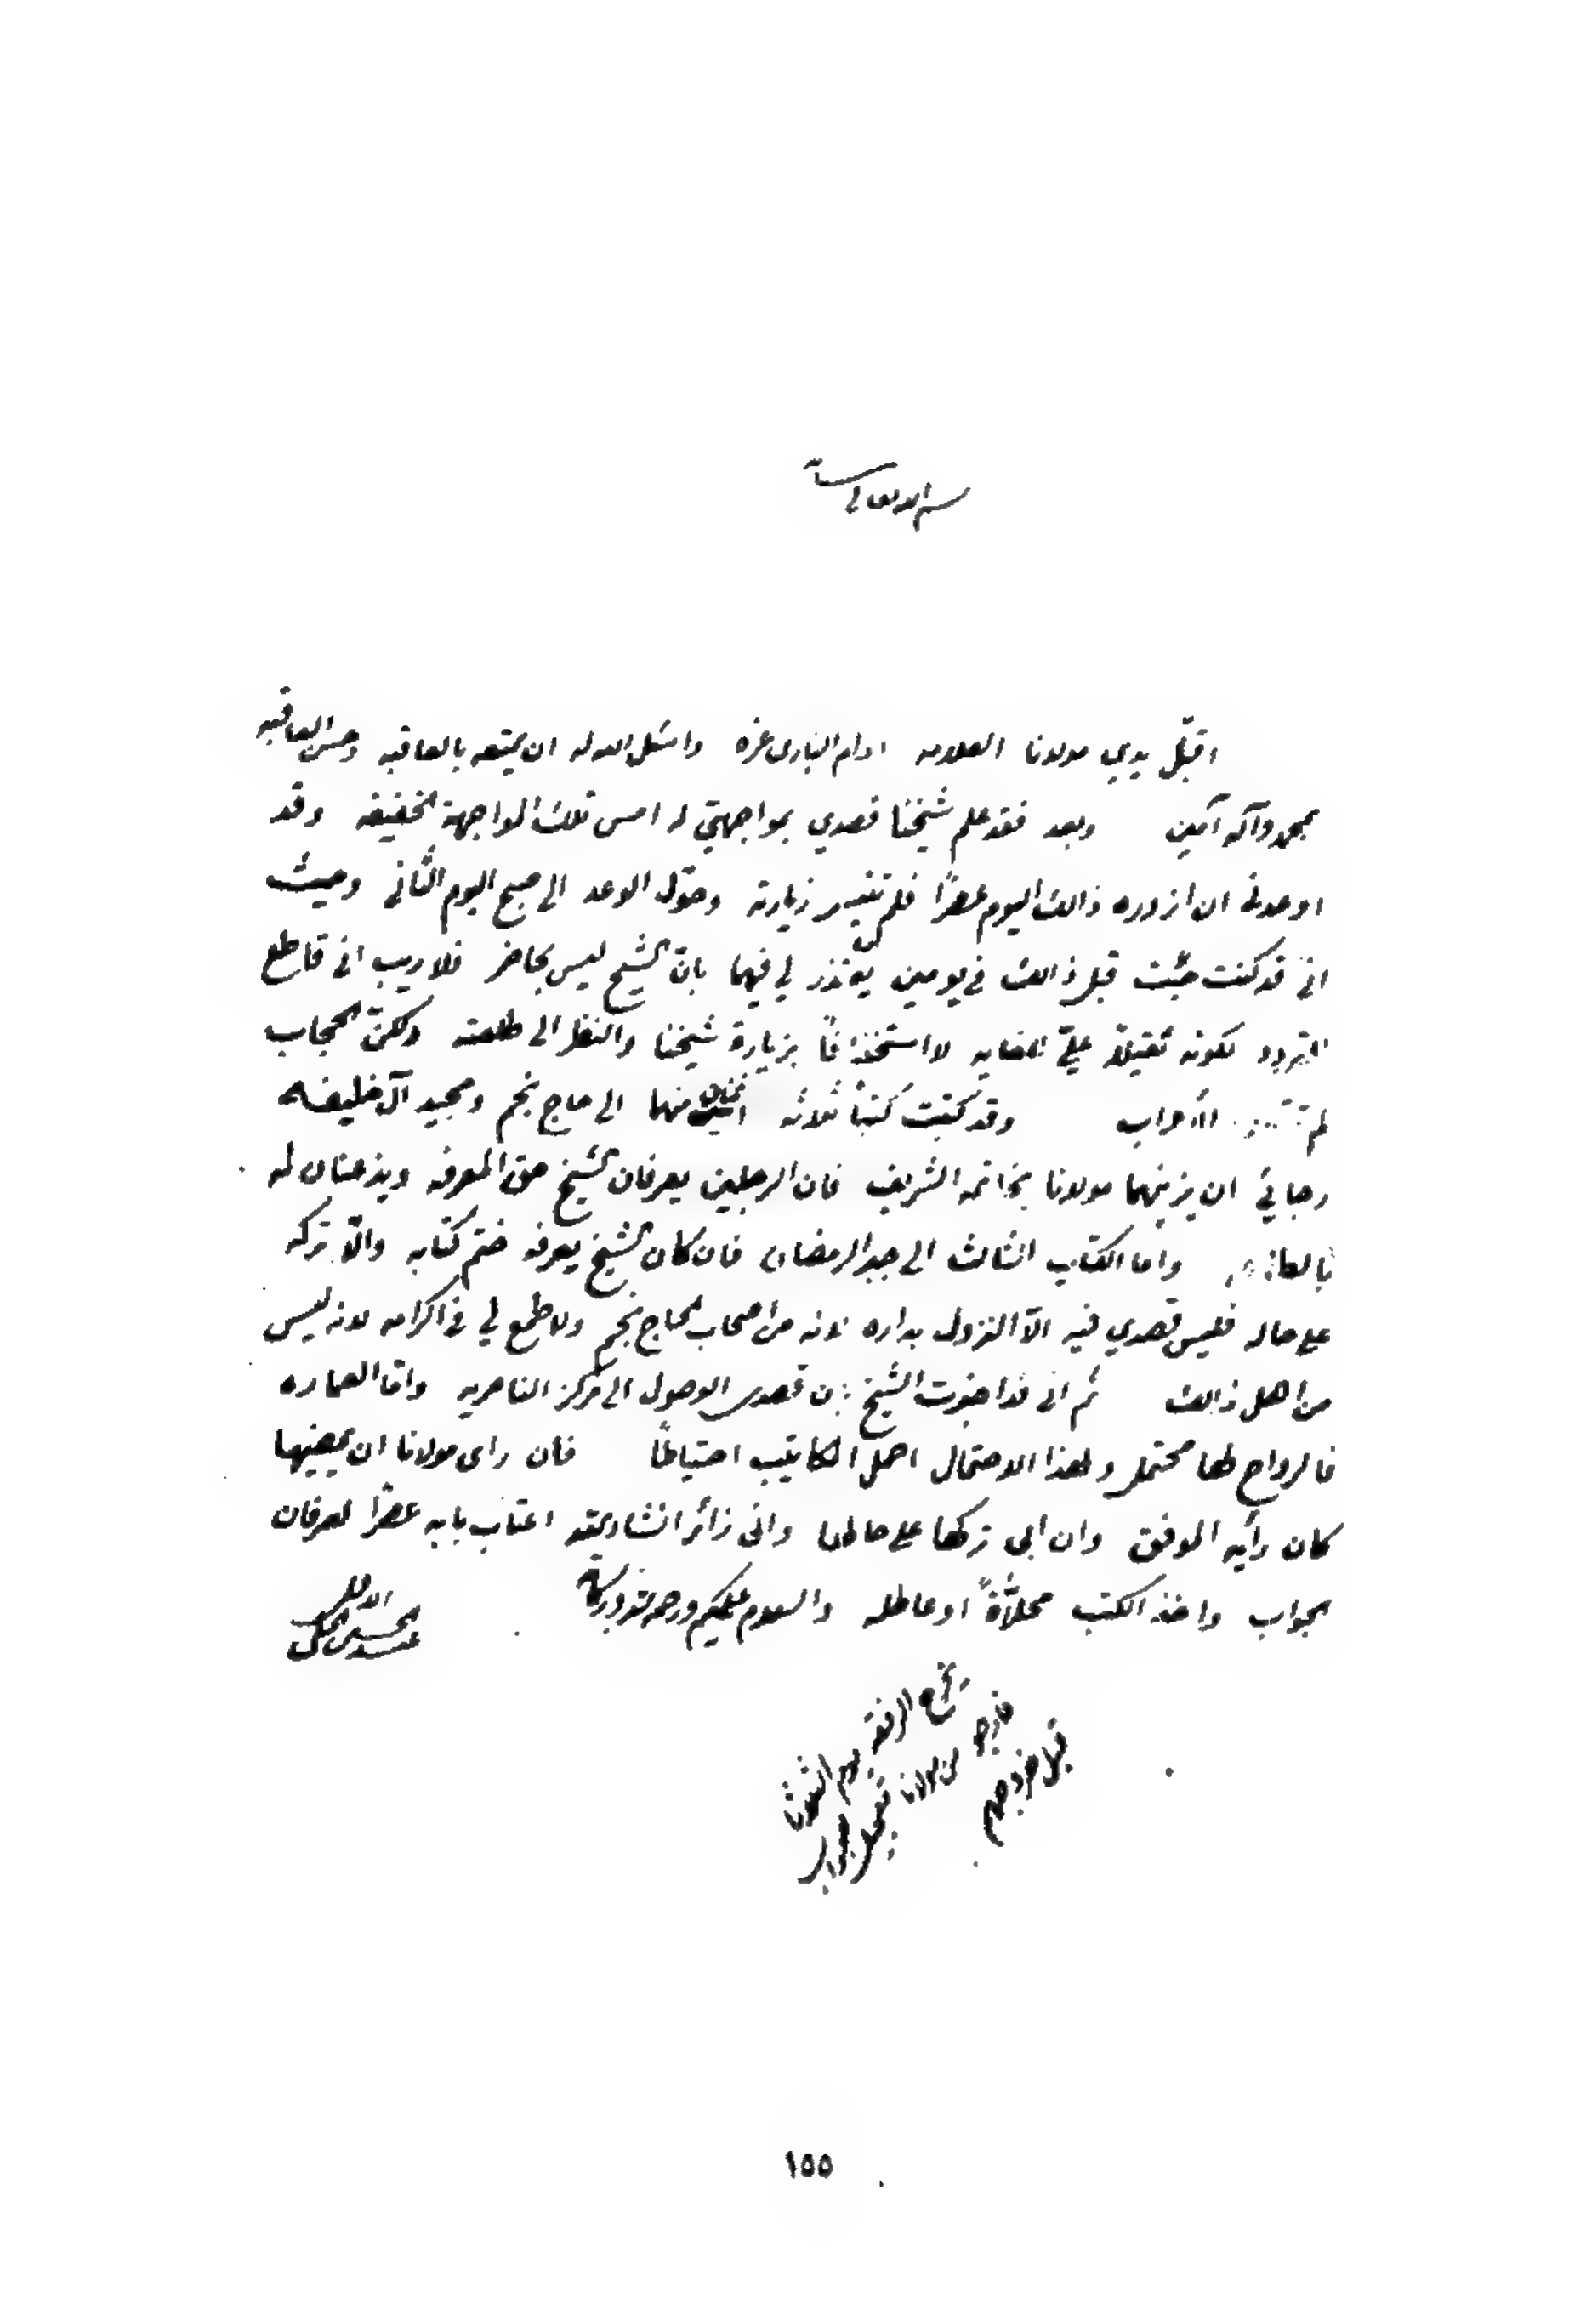 بسم الله تعالى شأنه
اقبّل يدي مولانا العلامه ادام الباري عزه واسئل الله له ان يمتعه بالعافيه وحسن العاقبه
بمحمد وآله آمين وبعد فقد علم شيخنا قصدي بمواجهتي له امس تلك المواجهة الخفيفه وقد
اوعدته ان ازوره ذالك اليوم عصرًا فلم تتيسر زيارته وحوّل الوعد الى صبح اليوم الثاني وحيث
اني قد كنت جئت قبل ذالك في يومين يعتذر لي فيهما بان الشيخ ليس بحاضر فلا ريب اني قاطع
التردد لكونه ثقيلاً عليّ للغايه لا استخفافًا بزيارة شيخنا والنظر الى طلعته ولكنّ الحجاب
لم وقد كتبت كتبًا ثلاثه اثنان منهما الى حاج نجم ومجيد آل خليفه
رجائي ان يزينهما مولانا بخاتمه الشريف فان الرجلين يعرفان الشيخ حق المعرفه ويذعنان له
واما الكتاب الثالث الى جبر الرمضان فان كان الشيخ يعرفه ختم كتابه والّا تركه
على حاله فليس قصدي فيه الّا النزول بداره لانه من اصحاب الحاج نجم ولا طمع لي في اكرامه لانه ليس
من اهل ذالك ثم اني قد اخبرت الشيخ بان قصدي الوصول الى مركز الناصريه وامّا العماره
فالرواح لها محتمل ولهذا الاحتمال احمل المكاتيب احتياطًا فان راى مولانا ان يمضيها
كان رأيه الموفق وان ابى تركها على حالها واني زائر انشاء الله اعتاب بابه عصرًا لعرفان
الجواب واخذ الكتب محلّاةً او عاطله والسلام عليكم ورحمة الله وبركاته
الاقل
عبد الحسين الحلي
١٥٥